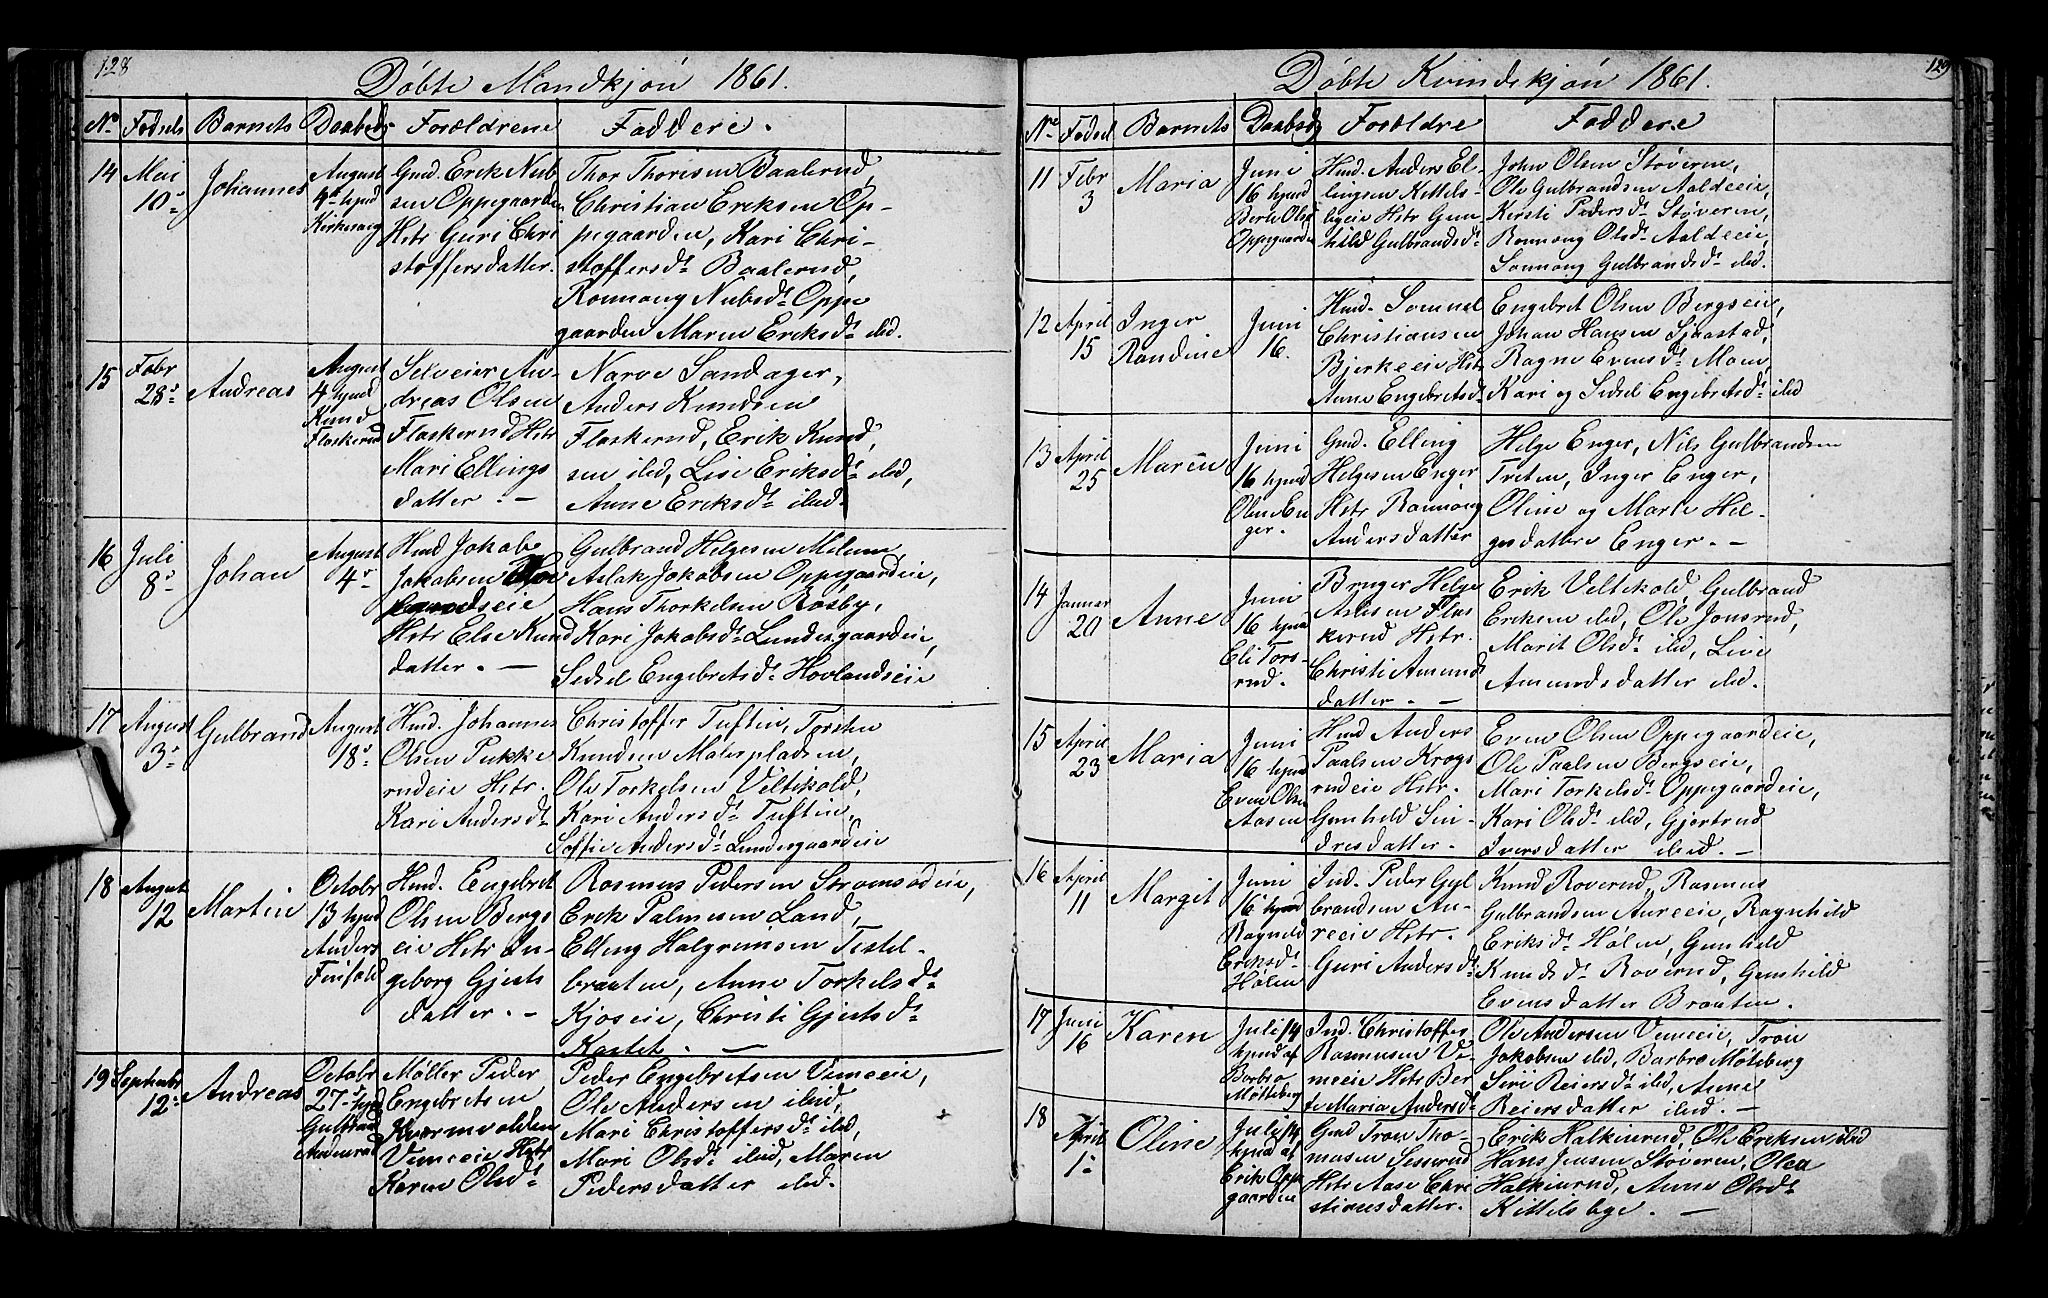 128
Døbte Mandkjøn 1861.
No Fødsels Barnets Daabsd. Forældrene Faddere.
14 Mai 10de Johannes August 4de hjmd Kirkevaig
Gmd. Erik Nub
sen Oppegaarden
Hstr Guri Chri
stoffersdatter.
Thor Thorisen Baalerud,
Christian Eriksen Op-
pegaarden, Kari Chri-
stoffersdt. Baalerud,
Ronnaug Nubsdt. Oppe
gaarden Maren Eriksdt. ibid.
15 Febr 28de Andreas August 4 hjmd Knud Flaskerud
Selveier An-
dreas Olsen
Flaskerud Hstr
Mari Ellings
datter. —
Narve Sandager,
Anders Knudsen
Flaskerud, Erik Knud,
sen ibid, Lise Eriksdt. ibid,
Anne Eriksdt. ibid.
16 Juli 8de Johan August 4de
Hmd Jakob
Jakobsen
Hstr Else Knud
datter. —
Gulbrand Helgesen Melum,
Aslak Jakobsen Oppegaardeie,
Hans Thorkelsen Rosby,
Kari Jakobsdt. Lundergaardeie,
Sedsel Engebretsdt. Hovlandseie
17 August 3de Gulbrand August 18de
Hmd. Johannes
Olsen Pukke
rudeie Hstr.
Kari Andersdt.
Christoffer Tuftin, Torsten
Knudsen Malerpladsen,
Ole Torkelsen Veltekold,
Kari Andersdt. Tuftin,
Soffie Andersdt. Lundergaardeie
18 August 12 Martin Octobr 13 hjmd Anders Finfold
Hmd. Engebret
Olsen Bergs
eie Hstr In-
geborg Gjests
datter. —
Rasmus Pedersen Stromsodeie,
Erik Palmesen Land,
Elling Halgrimsen Tistel-
braaten, Anne Torkelsdt.
Kjoseie, Christi Gjestsdt.
Kastet. —
19 Septembr 12te Andreas Octobr 27de hjmd Gulbrand
Møller Peder
Engebretsen
Kvernvolden
Vemeeie Hstr
Karen Olsdt.
Peder Engebretsen Vemeeie,
Ole Andersen ibid,
Mari Christoffersdt. ibid,
Mari Olsdt. ibid, Maren
Pedersdatter ibid.
129
Døbte Kvindekjøn 1861.
No Fødsel Barnets Daabsd Forældre Faddere
11 Febr 3 Maria Juni 16 hjmd Berte Olsdt Oppegaarden
Hmd. Anders El-
lingsen Kittels-
byeie Hstr Gun-
hild Gulbrandsdt.
John Olsen Støveren,
Ole Gulbrandsen Aaldeeie,
Kersti Pedersdt. Støveren,
Ronnaug Olsdt. Aaldeeie,
Ronnaug Gulbrandsdt. ibid.
12 April 15 Inger Randine Juni 16.
Hmd. Samuel
Christiansen
Bjerkeeie Hstr
Anne Engebretsdt.
Engebret Olsen Bergseie,
Johan Hansen Sjaastad,
Ragne Evensdt. Moen,
Kari og Sidsel Engebretsdt. ibid
13 April 25 Maren Juni 16 hjmd Oline Enger.
Gmd. Elling
Helgesen Enger
Hstr Ronnaug
Andersdatter
Helge Enger, Nils Gulbrandsen
Treten, Inger Enger,
Oline og Marte Hel-
gesdattre Enger. —
14 Januar 20 Anne Juni 16 hjmd Eli Torsrud.
Bruger Helge
Aslesen Flas
kerud Hstr.
Christi Amunds
datter. —
Erik Veltekold, Gulbrand
Eriksen ibid, Ole Jonsrud,
Marit Olsdt. ibid, Live
Amundsdatter ibid.
15 April 23 Maria Juni 16 hjmd Even Olsen Aasen
Hmd Anders
Paalsen Krogs
rudeie Hstr.
Gunhild Sin-
dresdatter. —
Even Olsen Oppegaardeie,
Ole Paalsen Bergseie,
Mari Torkelsdt. Oppegaardeie,
Kari Olsdt. ibid, Gjertrud
Iversdatter ibid. —
16 April 11 Margit Juni 16 hjmd Ragnild Eriksdt. Holen
Ind. Peder Gul
brandsen Au-
reeie Hstr.
Guri Andersdt.
Knud Roverud, Rasmus
Gulbrandsen Aureeie, Ragnhild
Eriksdt. Holen, Gunhild
Knudsdt. Roverud, Gunhild
Evensdatter Braaten.
17 Juni 16 Karen Juli 14 hjmd af Barbro Møtteberg
Ind. Christoffer
Rasmusen Ve-
meeie Hstr Ber
te Maria Andersdt.
Ole Andersen Vemeeie, Tron
Jakobsen ibid, Barbro Møteberg
Siri Reiersdt. ibid, Anne
Reiersdatter ibid. —
18 April 1ste Oline Juli 14 hjmd af Erik Oppegaarden
Gmd Tron Tho-
masen Sesserud
Hstr Aase Chri
stiansdatter.
Erik Halkinrud, Ole Eriksen ibid
Hans Jensen Støveren, Olea
Halkinrud, Anne Olsdt.
Kittelsbye. —